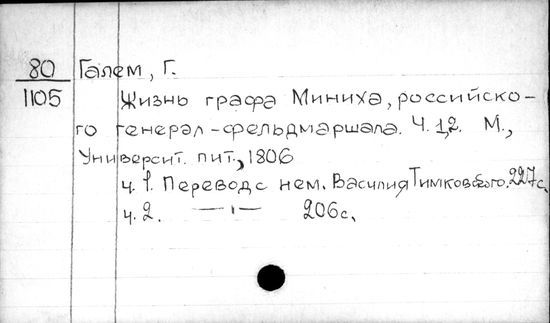 80 Галем, Г.
1105 Жизнь графа Миниха, российско-
го генерал-фельдмаршала. Ч. 1,2. М.,
Университ. пит., 1806
ч. 1. Перевод с нем. Василия Тимковского. 227с.
ч. 2. —"— 206с.